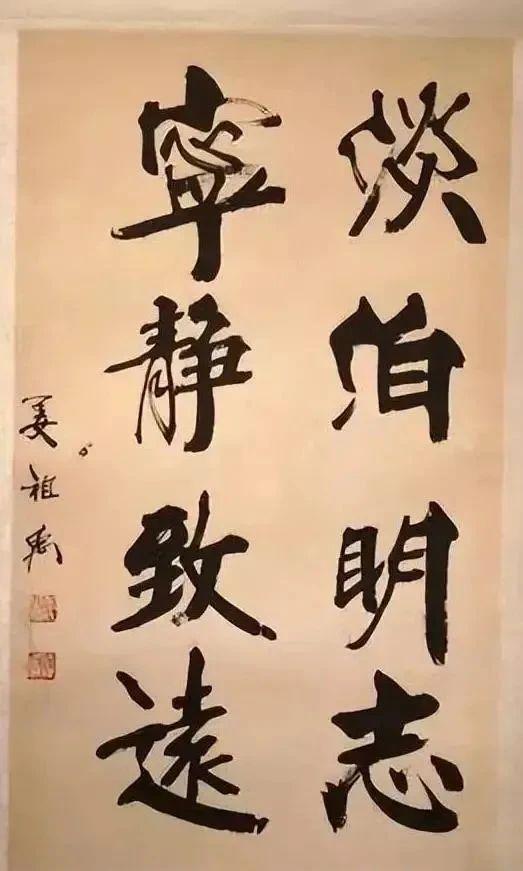 淡泊明志
寧静致遠
姜祖禹